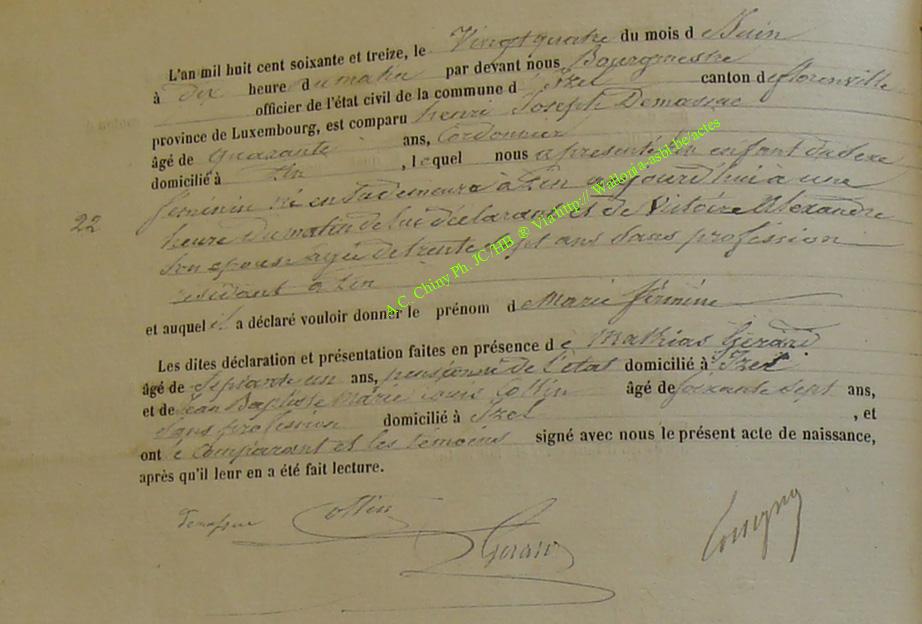 L'an mil huit cent soixante et treize, le Vingtquatre du mois d e Juin
à dix heure d u matin par devant nous Bourgmestre
officier de l'état civil de la commune d' Izel canton de florenville
province de Luxembourg, est comparu henri Joseph Demasse
âgé de quarante ans, Cordonnier
domicilié à , lequel nous a présenté un enfant du Sexe
féminin né en sa demeure à aujourd'hui a une
22
heure du matin de lui déclarant et de Victoire Alexandre
Son epouse agée de trente sept ans sans profession
résidant à
et auquel il a déclaré vouloir donner le prénom d e Marie firmine
Les dites déclaration et présentation faites en présence d e Mathias Gérard
âgé de Septante un ans, pensionné de l'état domicilié à Izel
et de Jean Baptiste Marie Louis Collin âgé de soixante sept ans,
sans profession domicilié à Izel , et
ont le comparant et les témoins signé avec nous le présent acte de naissance,
après qu'il leur en a été fait lecture.
Demasse Collin Gérard
A.C. Chiny Ph. JC/HB ® Via http://Wallonia-asbl.be/actes